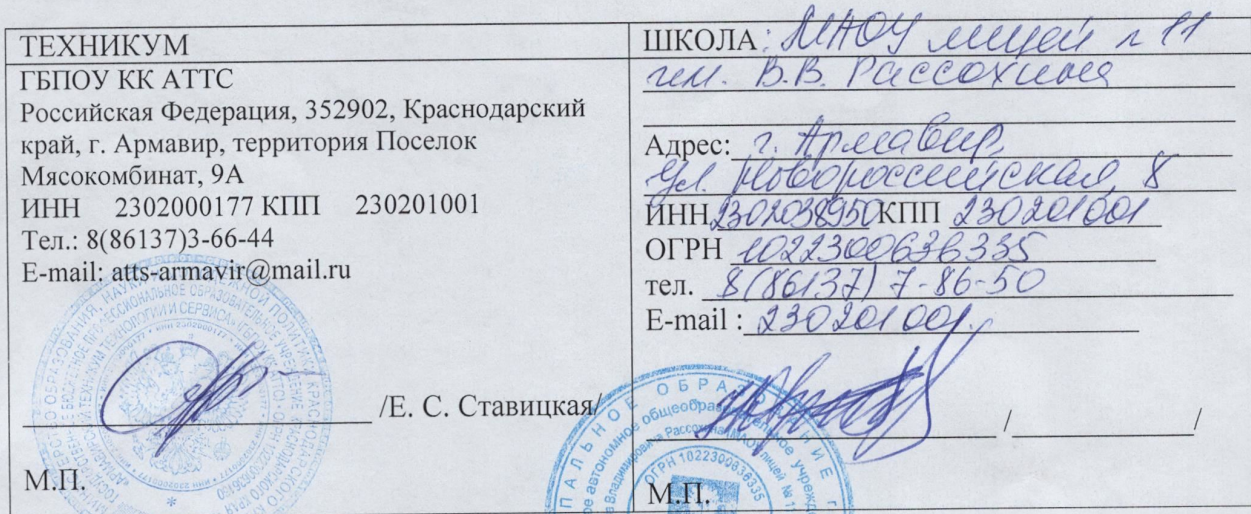 ТЕХНИКУМ
ГБПОУ КК АТТС
Российская Федерация, 352902, Краснодарский
край, г. Армавир, территория Поселок
Мясокомбинат, 9А
ИНН 2302000177 КПП 230201001
Тел.: 8(86137)3-66-44
E-mail: atts-armavir@mail.ru
/Е. С. Ставицкая/
М.П.
ШКОЛА: МАОУ лицей № 11
им. В.В. Рассохина
Адрес: г. Армавир,
ул. Новороссийская, 8
ИНН 2302038950 КПП 230201001
ОГРН 1022300636335
тел. 8(86137) 7-86-50
E-mail : 230201001.
/ /
М.П.
ОГРН 1022300636335